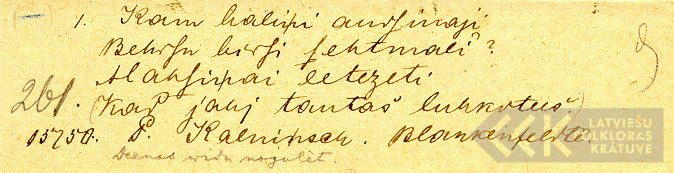 1. Kam kalibi audsinaji
Behrsu birsi sehtmali?
Mahsihai leezeti
(Kas jahj tautas luhkotees)
261.
15750. P. Kalnirsch. Blankenfeldt.
Deenas widu nogulet.
LATVIEŠU
FOLKLORAS
KRĀTUVE